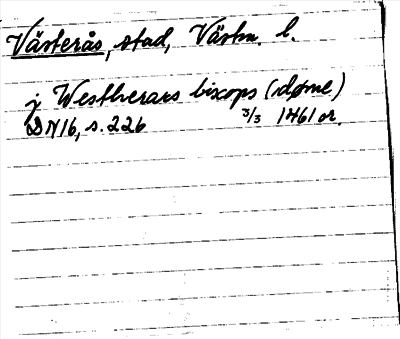 Västerås, stad, Västm. l.
j Westherars biscops (døme)
DN 16, s. 226 3/3 1461 or.